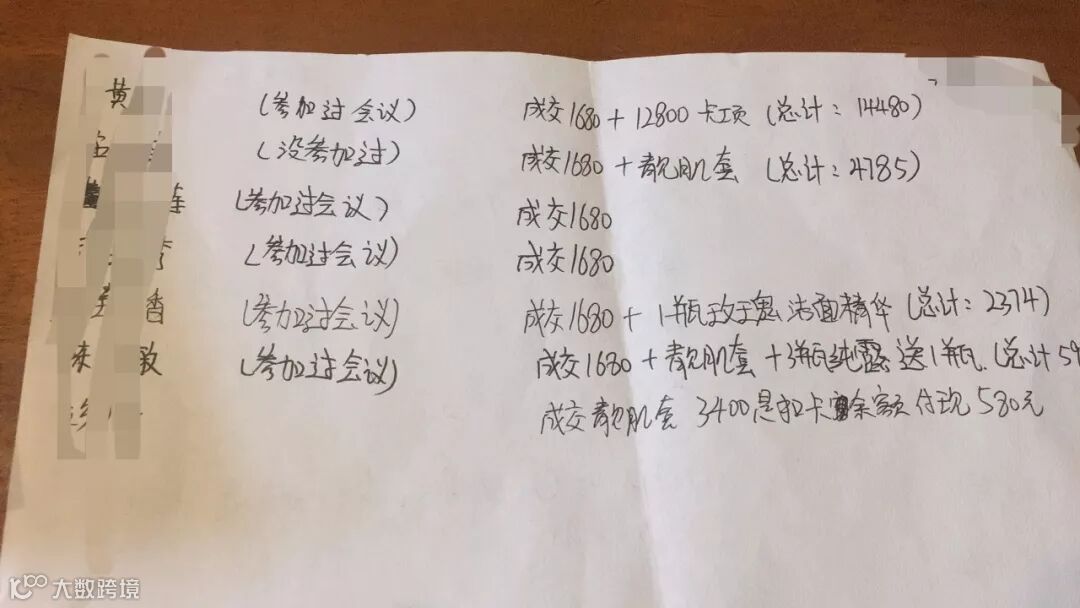 黄 (参加过会议) 成交1680 + 12800卡项 (总计: 14480)
(没参加过) 成交1680 + 靓肌套 (总计: 4785)
莲 (参加过会议) 成交1680
(参加过会议) 成交1680
香 (参加过会议) 成交1680 + 1瓶玫瑰洁面精华 (总计: 2374)
敏 (参加过会议) 成交1680 + 靓肌套 + 3瓶纯露 送1瓶. (总计 59
成交靓肌套 3400是扣卡余额 付现580元
大数跨境